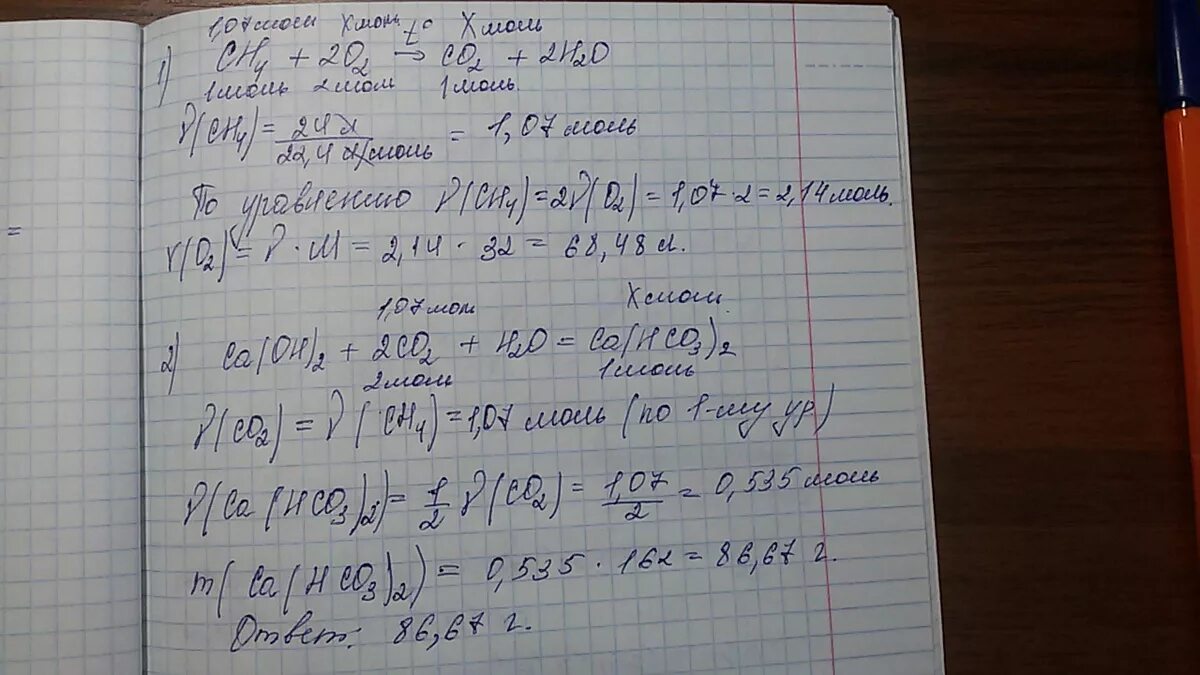 1,07 моль X моль X моль
1) CH₄ + 2O₂ t° → CO₂ + 2H₂O
1 моль 2 моль 1 моль
ν(CH₄) = 24 л / 22,4 л/моль = 1,07 моль
По уравнению ν(CH₄) = 2ν(O₂) = 1,07 · 2 = 2,14 моль.
V(O₂) = ν · M = 2,14 · 32 = 68,48 л.
1,07 моль X моль
2) Ca(OH)₂ + 2CO₂ + H₂O = Ca(HCO₃)₂
2 моль 1 моль
ν(CO₂) = ν(CH₄) = 1,07 моль (по 1-му ур)
ν(Ca(HCO₃)₂) = 1/2 ν(CO₂) = 1,07/2 = 0,535 моль
m(Ca(HCO₃)₂) = 0,535 · 162 = 86,67 г.
Ответ: 86,67 г.
=